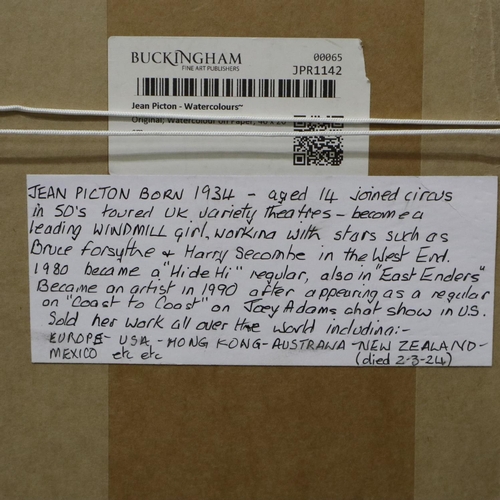 BUCKINGHAM
FINE ART PUBLISHERS
00065
JPR1142
Jean Picton - Watercolours~
Original, Watercolour on Paper,
JEAN PICTON BORN 1934 - aged 14 joined circus
in 50's toured UK variety theatres - become a
leading WINDMILL girl, working with stars such as
Bruce Forsythe & Harry Secombe in the West End.
1980 became a "Hi de Hi" regular, also in "East Enders"
Became an artist in 1990 after appearing as a regular
on "Coast to Coast" on Joey Adams chat show in U.S.
Sold her work all over the world including:-
EUROPE - USA - HONG KONG - AUSTRALIA - NEW ZEALAND -
MEXICO etc etc (died 2-3-24)